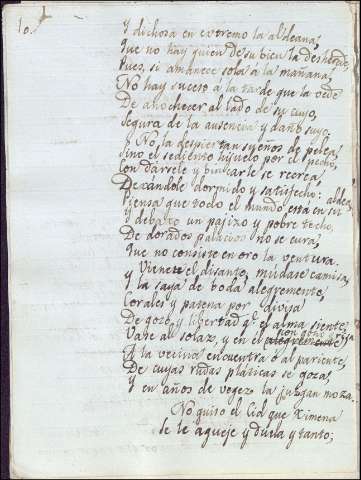 10.
Y dichosa en extremo la aldeana,
Que no hay quien de su bien la desherede,
Pues, si amanece sola á la mañana,
No hay suceso á la tarde que la vede
De anochecer al lado de su cuyo,
Segura de la ausencia y daño suyo.
No, la despiertan sueños de pelea,
Sino el sediento hijuelo por el pecho,
Con dársele y brizarle se recrea,
Dexandole dormido y satisfecho:
Piensa que todo el mundo esta en su aldea
Y debaxo un pajizo y pobre techo,
De dorados palacios no se cura,
Que no consiste en oro la ventura.
Vienese el disanto, mudase camisa,
Y la saya de boda alegremente,
Corales y patena por divisa
De gozo y libertad q.e el alma siente;
Vase al solaz, y en el por goxo y risa
A la vecina encuentra ó al pariente,
De cuyas rudas pláticas se goza,
Y en años de vegez la juzgan moza.
No quiso el Cid que Ximena
se le aqueje y duela y tanto;